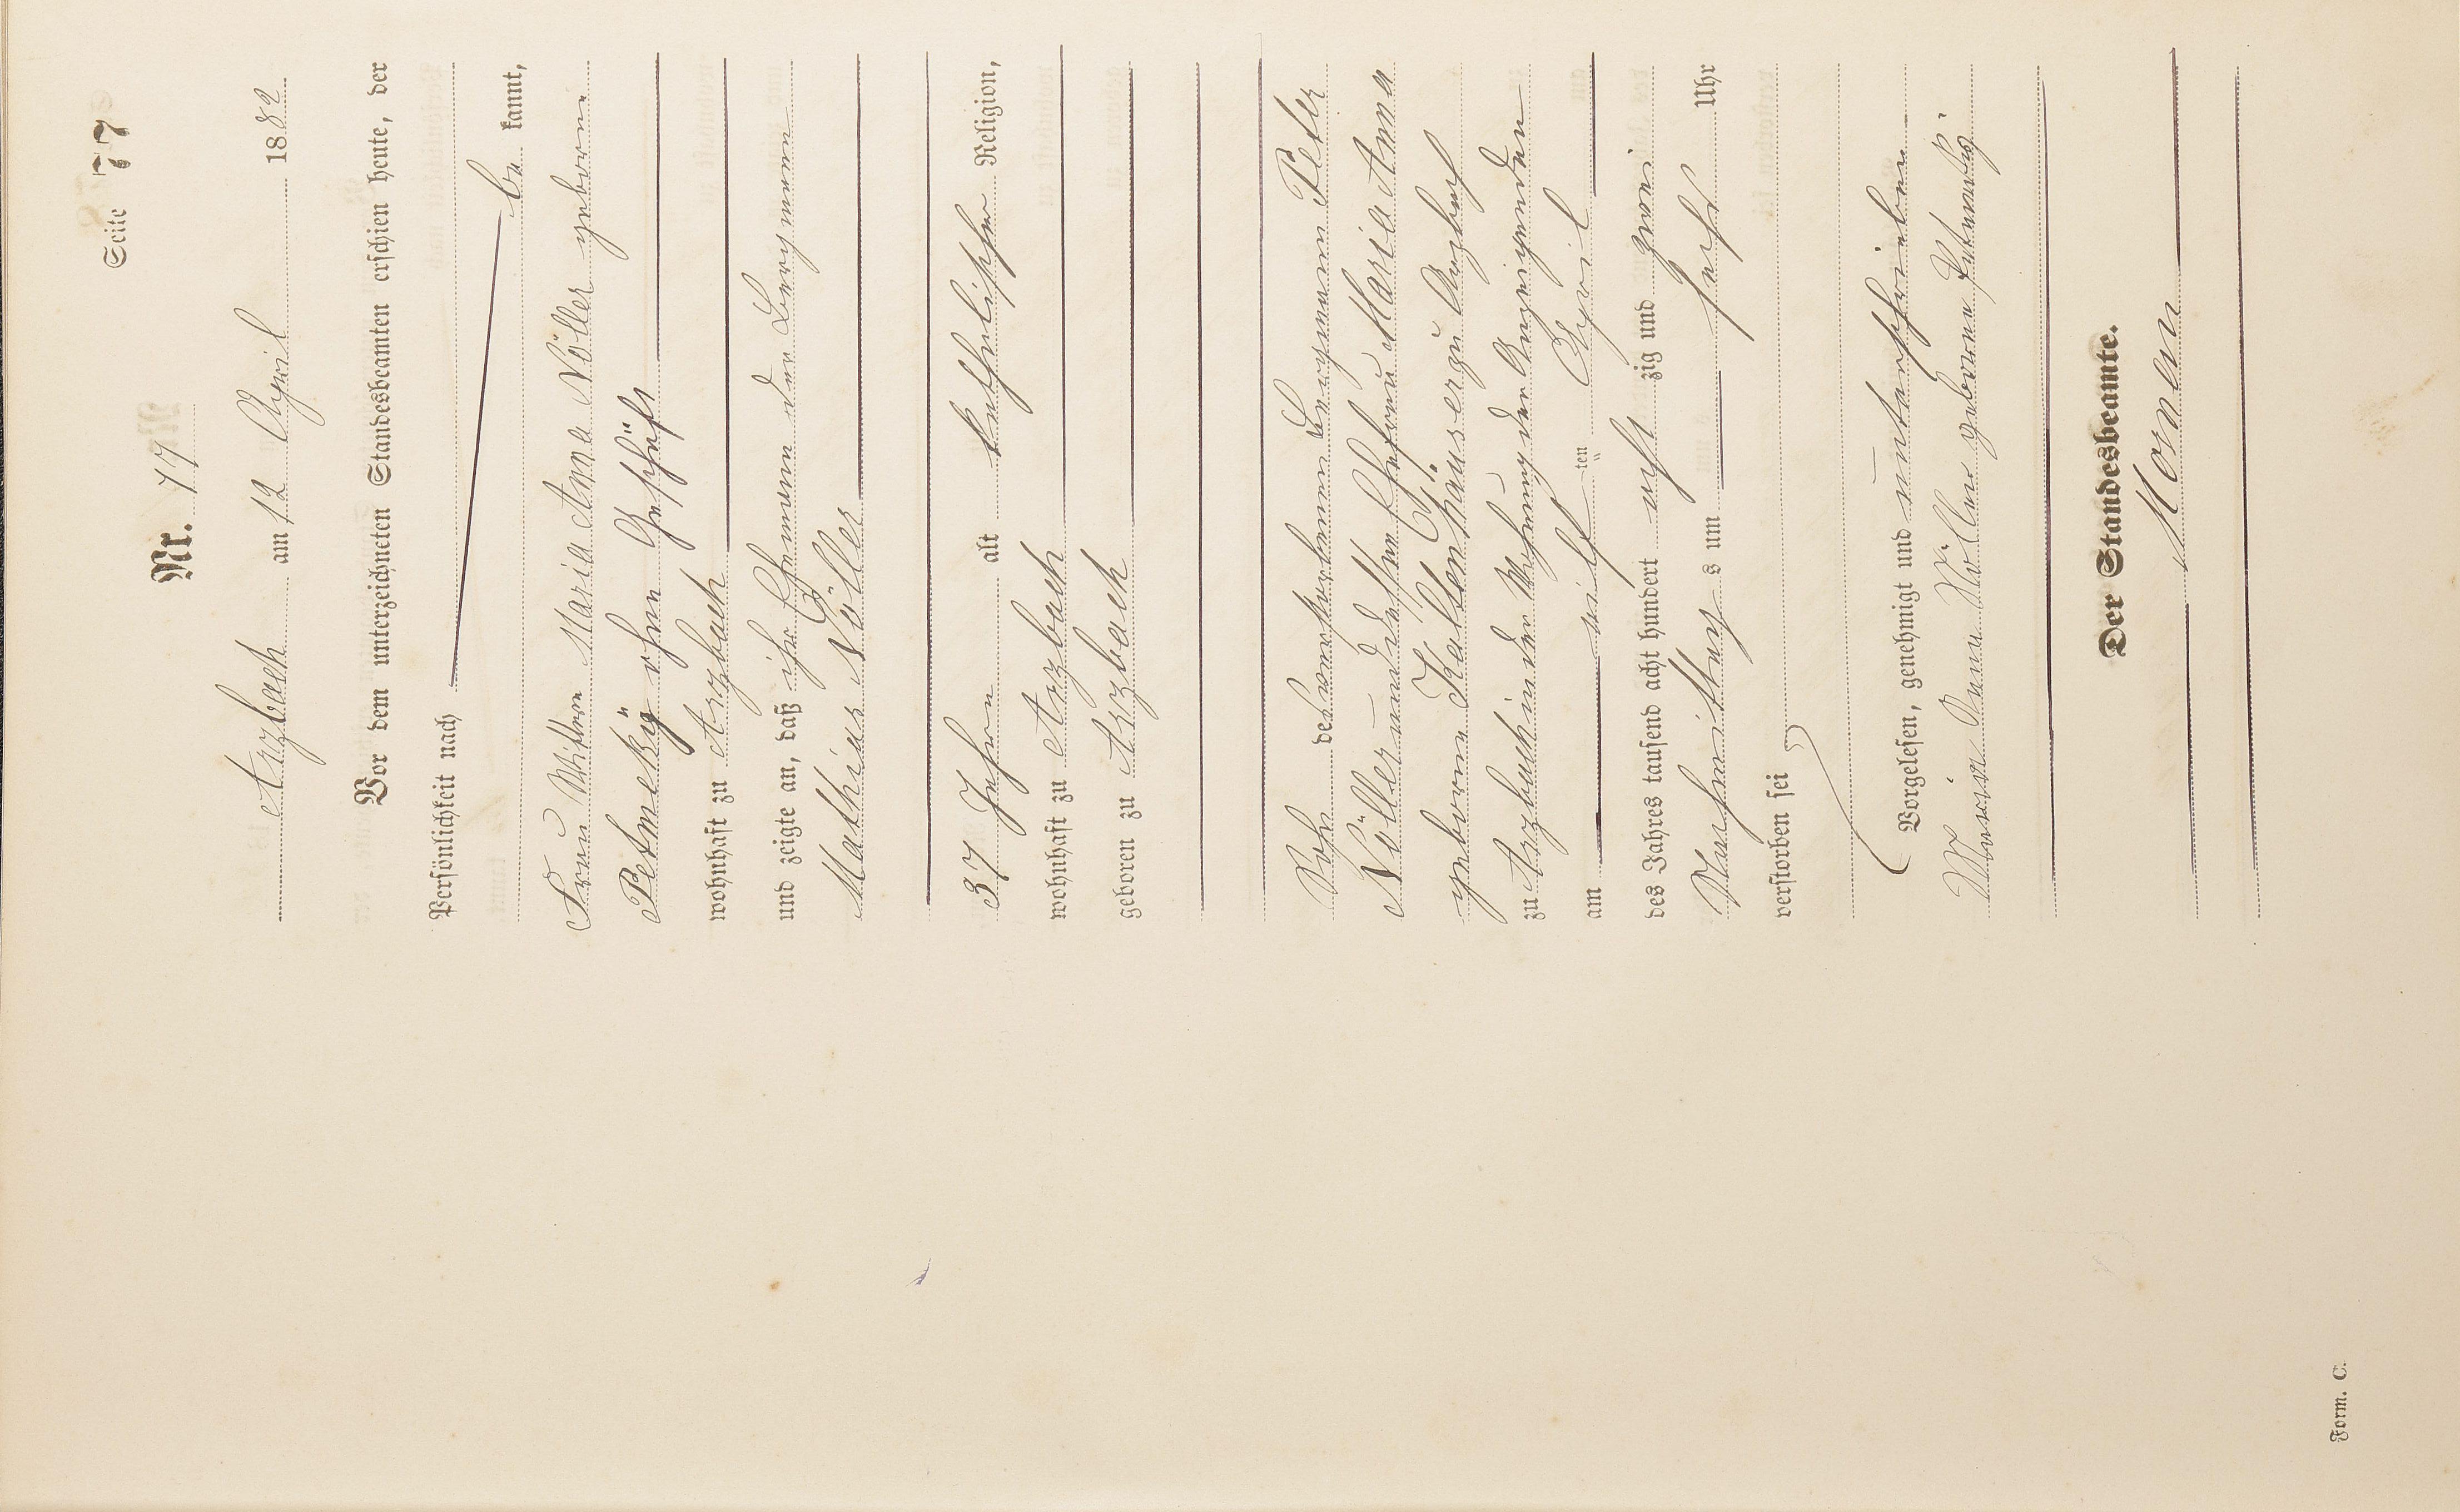 Seite 77
Nr. 17
Arzbach am 12 April 1882
Vor dem unterzeichneten Standesbeamten erschien heute, der
Persönlichkeit nach
be kannt,
Frau Witwe Maria Anna Nöller geborne
Petmecky ohne Geschäft
wohnhaft zu Arzbach
und zeigte an, daß ihr Ehemann der Bergmann
Mathias Nöller
37 Jahre alt katholischer Religion,
wohnhaft zu Arzbach
geboren zu Arzbach
Sohn des verstorbenen Bergmann Peter
Nöller und dessen Ehefrau Maria Anna
geborne Kaltenhäuser zu Arzbach
zu Arzbach in der Wohnung der Anzeigenden
am elf ten April
des Jahres tausend acht hundert acht zig und zwei
Nachmittag s um sechs Uhr
verstorben sei
Vorgelesen, genehmigt und unterschrieben
Maria Anna Nöller geborne Petmecky
Der Standesbeamte.
Form. C.